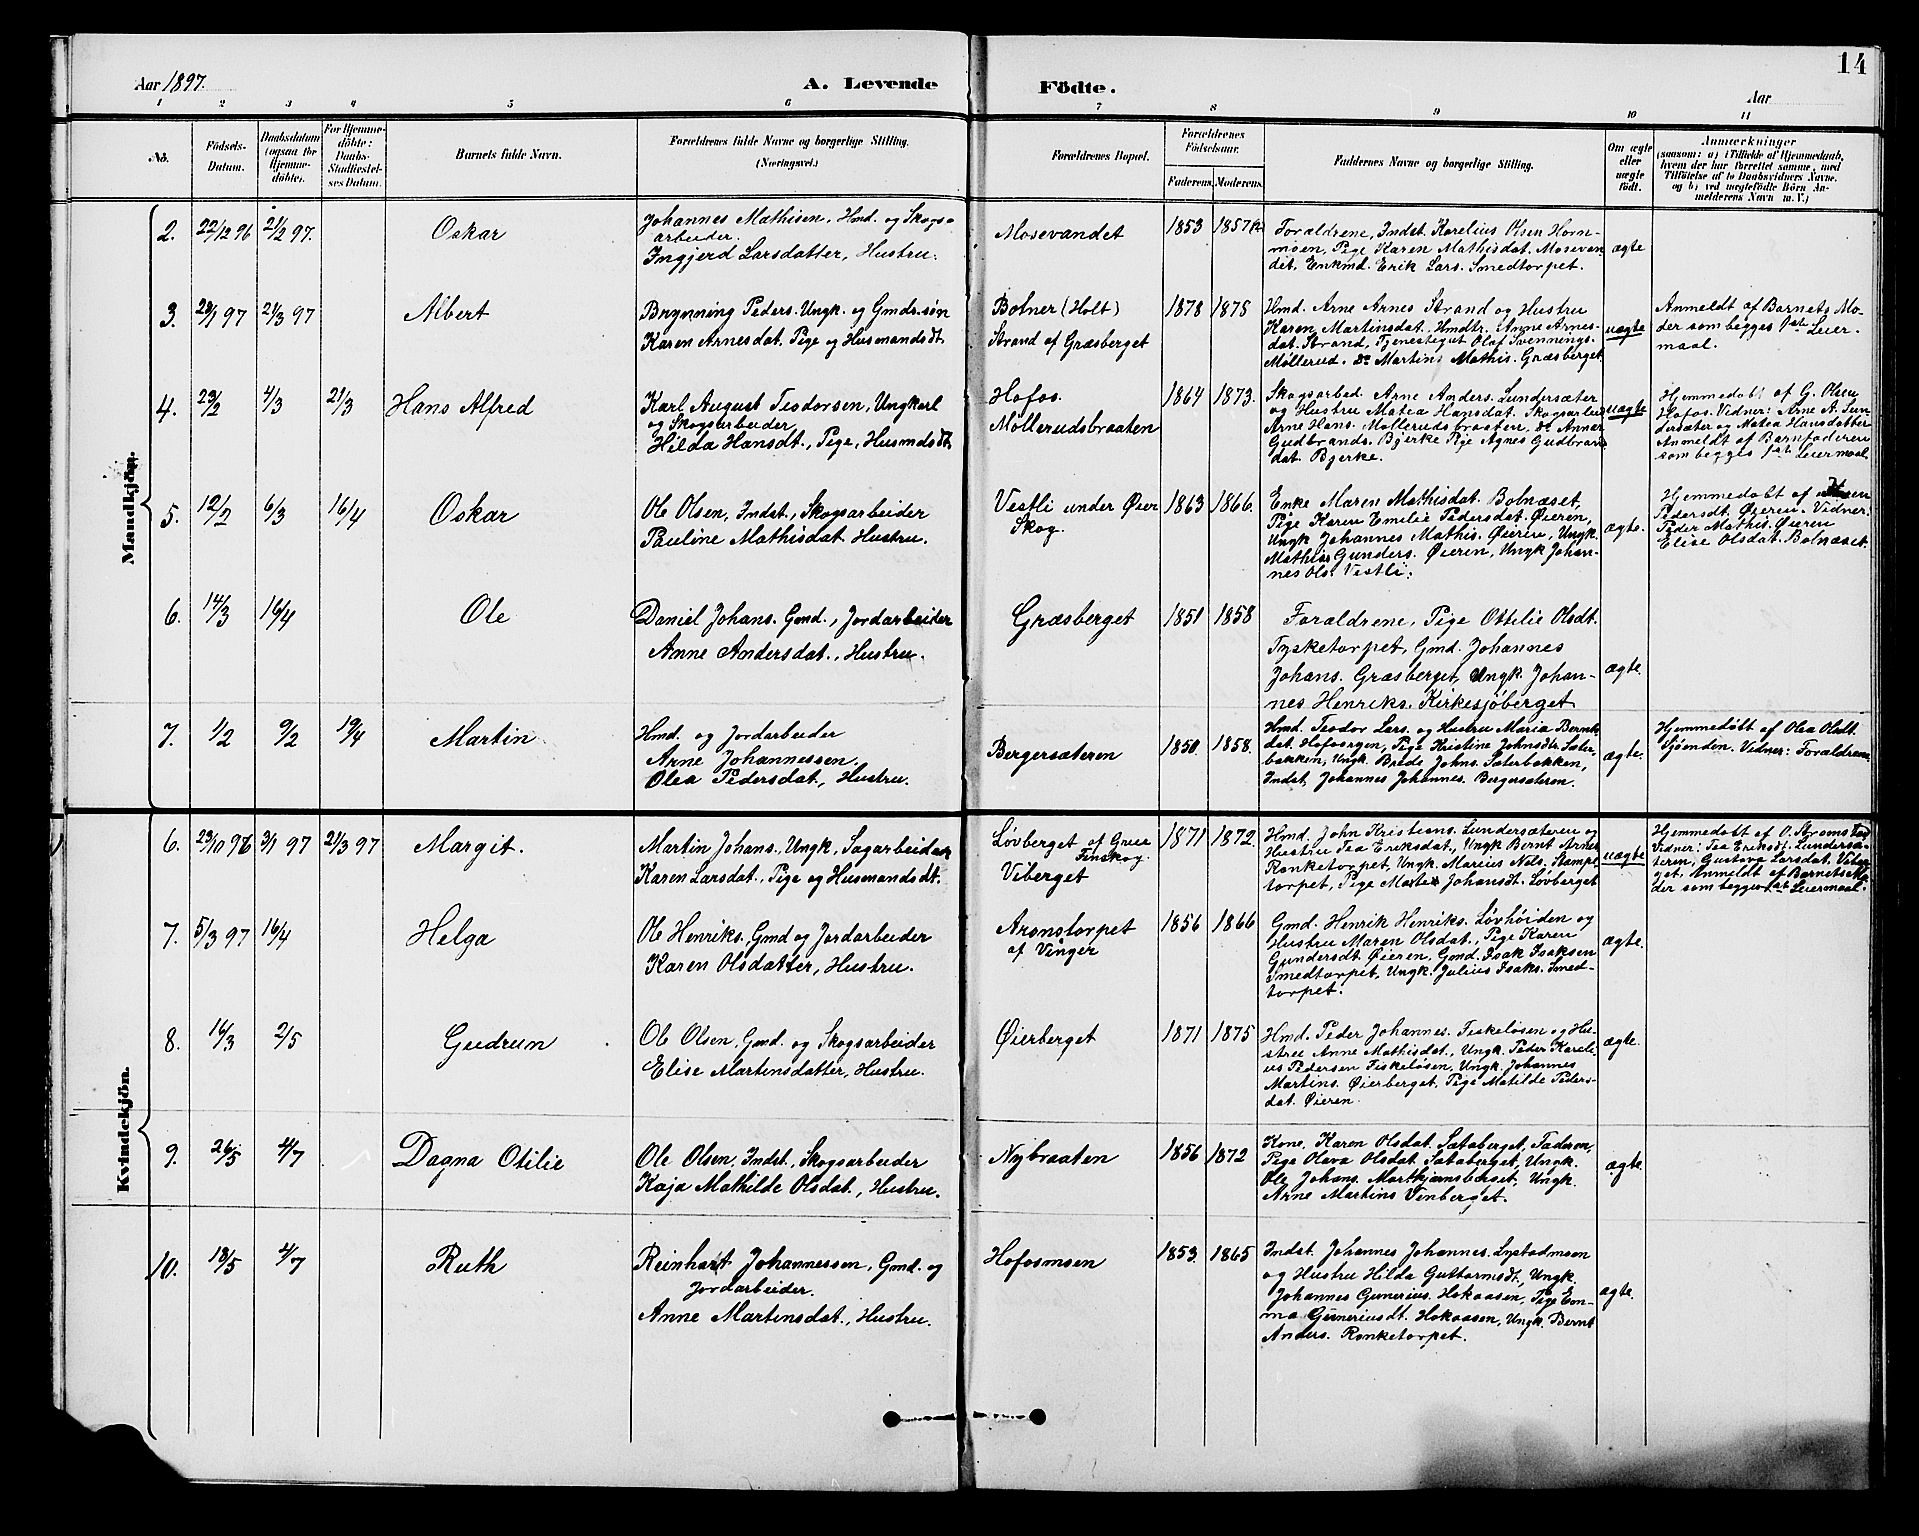 14
Aar 1897.
A. Levende
Födte.
Aar
1 2 3 4 5 6 7 8 9 10 11
No.
Födsels-
Datum.
Daabsdatum
(ogsaa for
Hjemme-
döbte).
For Hjemme-
döbte:
Daabs-
Stadfæstel-
ses Datum.
Barnets fulde Navn.
Forældrenes fulde Navne og borgerlige Stilling.
(Næringsvei.)
Forældrenes Bopæl.
Forældrenes
Födselsaar.
Faderens. Moderens.
Faddernes Navne og borgerlige Stilling.
Om ægte
eller
uægte
födt.
Anmærkninger
(saasom: a) i Tilfælde af Hjemmedaab,
hvem der har forrettet samme, med
Tilföielse af to Daabsvidners Navne,
og b) ved uægtefödte Börn An-
melderens Navn m. V.)
Mandkjön.
2. 22/12 96 2/2 97. Oskar
Johannes Mathisen, Hmd. og Skogs-
arbeider.
Ingjerd Larsdatter, Hustru.
Mosevandet
1853 1857
Forældrene, Indst. Karelius Olsen Horn-
moen, Pige Karen Mathisdat. Mosevan-
det, Enkmd. Erik Lars. Smedtorpet.
ægte
3. 97 21/3 97 Albert
Brynning Peders. Ungk. og Gmds.søn
Karen Arnesdat, Pige og Husmandsdt.
Botner (Holt)
Strand af Græsberget
1878 1875
Hmd. Arne Arnes Strand og Hustru
Karen Martinsdat. Hmdtr. Anne Arnes-
dat. Strand, Tjenestegut Olaf Svennings.
Møllerud. do Martins Mathis. Græsberget
uægte
Anmeldt af Barnets Mo-
der som begges 1ste Leier-
maal.
4. 23/2 4/3 21/3 Hans Alfred
Karl August Teodorsen, Ungkarl
og Skogsarbeider
Hilda Hansdt., Pige, Husmdsdt.
Hofos.
Møllerudsbraaten
1864 1873.
Skogsarbed. Arne Anders. Lundersæter
og Hustru Matea Hansdat. Skogsarbeid.
Arne Hans. Møllerudsbraaten, do Annar
Gudbrands. Bjerke Pige Agnes Gudbrands-
dat. Bjerke.
uægte
Hjemmedøbt af G. Olsen
Hofos. Vidner: Arne A. Lun-
dersæter og Matea Hansdatter
Anmeldt af Barnfaderen
som begges 1ste Leiermaal
5. 12/2 6/3 16/4 Oskar
Ole Olsen, Indst., Skogsarbeider
Pauline Mathisdat Hustru.
Vestli under Øier
Skog.
1863 1866.
Enke Maren Mathisdat. Bolnæset,
Pige Karen Emilie Pedersdat. Øieren,
Ungk Johannes Mathis. Øieren, Ungk.
Mathias Gunders. Øieren, Ungk Johan-
nes Ols. Vestli.
ægte.
Hjemmedøbt af
Pedersdt. Øieren. Vidner:
Peder Mathis. Øieren
Elise Olsdat. Bolnæset.
6. 14/3 16/4 Ole
Daniel Johans. Gmd., Jordarbeider
Anne Andersdat., Hustru.
Græsberget
1851 1858
Forældrene, Pige Ottilie Olsdt.
Tysketorpet, Gmd. Johannes
Johans. Græsberget, Ungk. Johan-
nes Henriks. Kirkesjøberget
ægte.
7. 1/2 9/2 19/4 Martin
Hmd. og Jordarbeider
Arne Johannessen.
Olea Pedersdat, Hustru.
Bergersæteren
1850. 1858.
Hmd. Teodor Lars. og Hustru Maria Berntss-
dat. Hofosorgen, Pige Kristine Johnsdtr. Sæter-
bakken, Ungk. Brede Johns. Sæterbakken,
Indst. Johannes Johannes. Bergersæteren.
ægte.
Hjemmedøbt af Olea Olsdt.
Sjønden. Vidner: Forældrene
Kvindekjön.
6. 23/10 96 3/1 97 21/3 97 Margit.
Martin Johans. Ungk, Sagarbeider
Karen Larsdat., Pige og Husmandsdt.
Løvberget af Grue
Finskog.
Viberget
1871 1872.
Hmd. John Kristians. Lundersæteren og
Hustru Tea Eriksdat, Ungk Bernt Arnes
Ronketorpet, Ungk. Marius Nels. Stampe-
torpet, Pige Johansdt. Løvberget
uægte
Hjemmedøbt af O. Strømstad
Vidner: Tea Eriksdt. Lundersæ-
teren, Gustava Larsdat. Viber-
get, Anmeldt af Barnets Mo-
der som begges 1ste Leiermaal.
7. 5/3 97 16/4 Helga
Ole Henriks. Gmd og Jordarbeider
Karen Olsdatter, Hustru.
Aronstorpet
af Vinger
1856 1866
Gmd. Henrik Henriks. Løvhøiden og
Hustru Maren Olsdat., Pige Karen
Gundersdt Øieren, Gmd. Isak Isaksen
Smedtorpet, Ungk. Julius Isaks. Smed-
torpet.
ægte.
8. 16/3 2/5 Gudrun
Ole Olsen, Gmd. og Skogsarbeider
Elise Martinsdatter, Hustru.
Øierberget
1871 1875
Hmd. Peder Johannes. Fiskeløsen og Hu-
stru Anne Mathisdat., Ungk. Peder Kareli-
us Pedersen Fiskeløsen, Ungk. Johannes
Martins. Øierberget, Pige Matilde Peders-
dat. Øieren.
ægte.
9. 26/5 4/7 Dagna Otilie
Ole Olsen, Indst., Skogsarbeider
Kaja Mathilde Olsdat., Hustru.
Nybraaten
1856 1872
Kone Karen Olsdat. Sætaberget, Faderen,
Pige Olava Olsdat. Sætaberget, Ungk.
Ole Johans. Mortkjærnsberget, Ungk.
Arne Martins Vinberget.
ægte.
10. 18/5 4/7 Ruth
Reinhart Johannessen, Gmd. og
Jordarbeider.
Anne Martinsdat., Hustru.
Hofosmoen
1853. 1865
Indst. Johannes Johannes. Lystadmoen
og Hustru Hilda Guttormsdt, Ungk.
Johannes Gunerius. Hokaasen, Pige Em-
ma Guneriusdt. Hokaasen, Ungk. Bernt
Anders. Ronketorpet.
ægte.